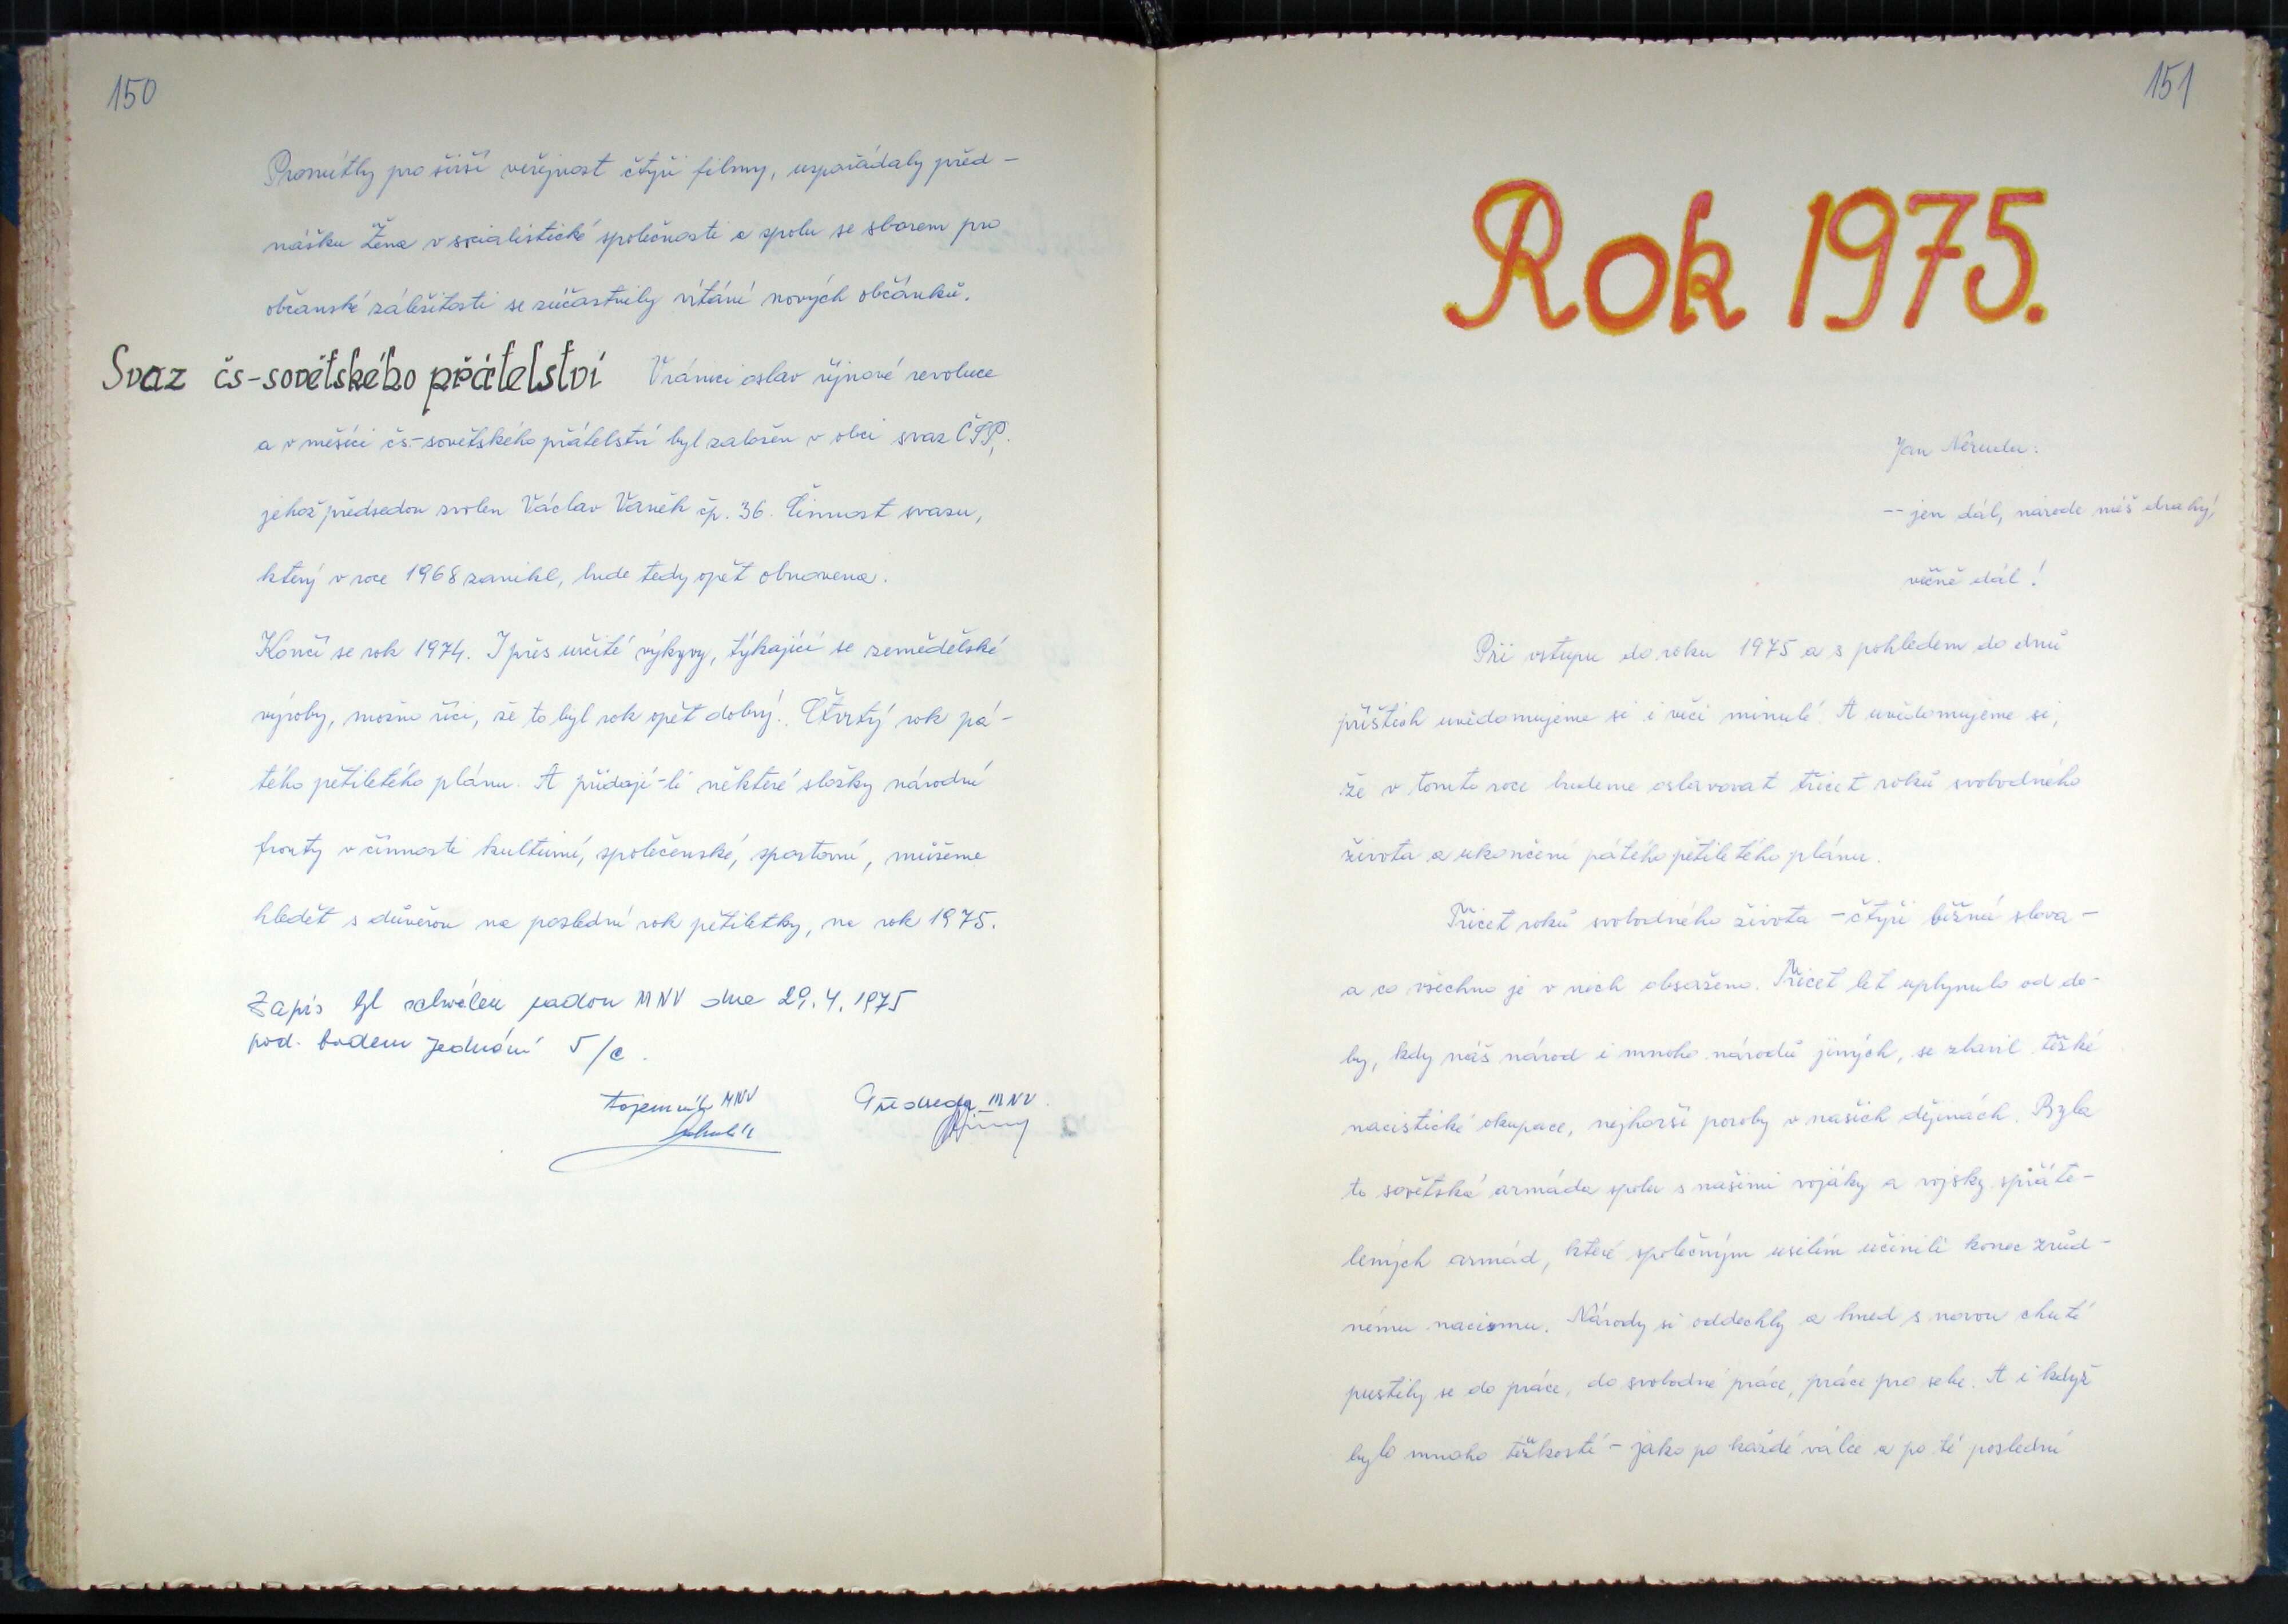 150
Promítly pro širší veřejnost čtyři filmy, uspořádaly před-
nášku Žena v socialistické společnosti a spolu se sborem pro
občanské záležitosti se zúčastnily vítání nových občánků.
Svaz čs-sovětského přátelství V rámci oslav říjnové revoluce
a v měsíci čs.-sovětského přátelství byl založen v obci svaz ČSSP,
jehož předsedou zvolen Václav Vaněk čp. 36. Činnost svazu,
který v roce 1968 zanikl, bude tedy opět obnovena.
Končí se rok 1974. I přes určité výkyvy, týkající se zemědělské
výroby, možno říci, že to byl rok opět dobrý. Čtvrtý rok pá-
tého pětiletého plánu. A přidají-li některé složky národní
fronty v činnosti kulturní, společenské, sportovní, můžeme
hledět s důvěrou na poslední rok pětiletky, na rok 1975.
Zápis byl schválen radou MNV dne 29.4.1975
pod. bodem jednání 5/c.
tajemník MNV Předseda MNV
151
Rok 1975.
Jan Neruda:
-- jen dál, národe můj drahý,
věčně dál!
Při vstupu do roku 1975 a s pohledem do dnů
příštích uvědomujeme si i věci minulé. A uvědomujeme si,
že v tomto roce budeme oslavovat třicet roků svobodného
života a ukončení pátého pětiletého plánu.
Třicet roků svobodného života - čtyři běžná slova -
a co všechno je v nich obsaženo. Třicet let uplynulo od do-
by, kdy náš národ i mnoho národů jiných, se zbavil těžké
nacistické okupace, nejhorší poroby v našich dějinách. Byla
to sovětská armáda spolu s našimi vojáky a vojsky spřáte-
lených armád, které společným úsilím učinili konec zrůd-
nému nacismu. Národy si oddechly a hned s novou chutí
pustily se do práce, do svobodné práce, práce pro sebe. A i když
bylo mnoho těžkostí - jako po každé válce a po té poslední